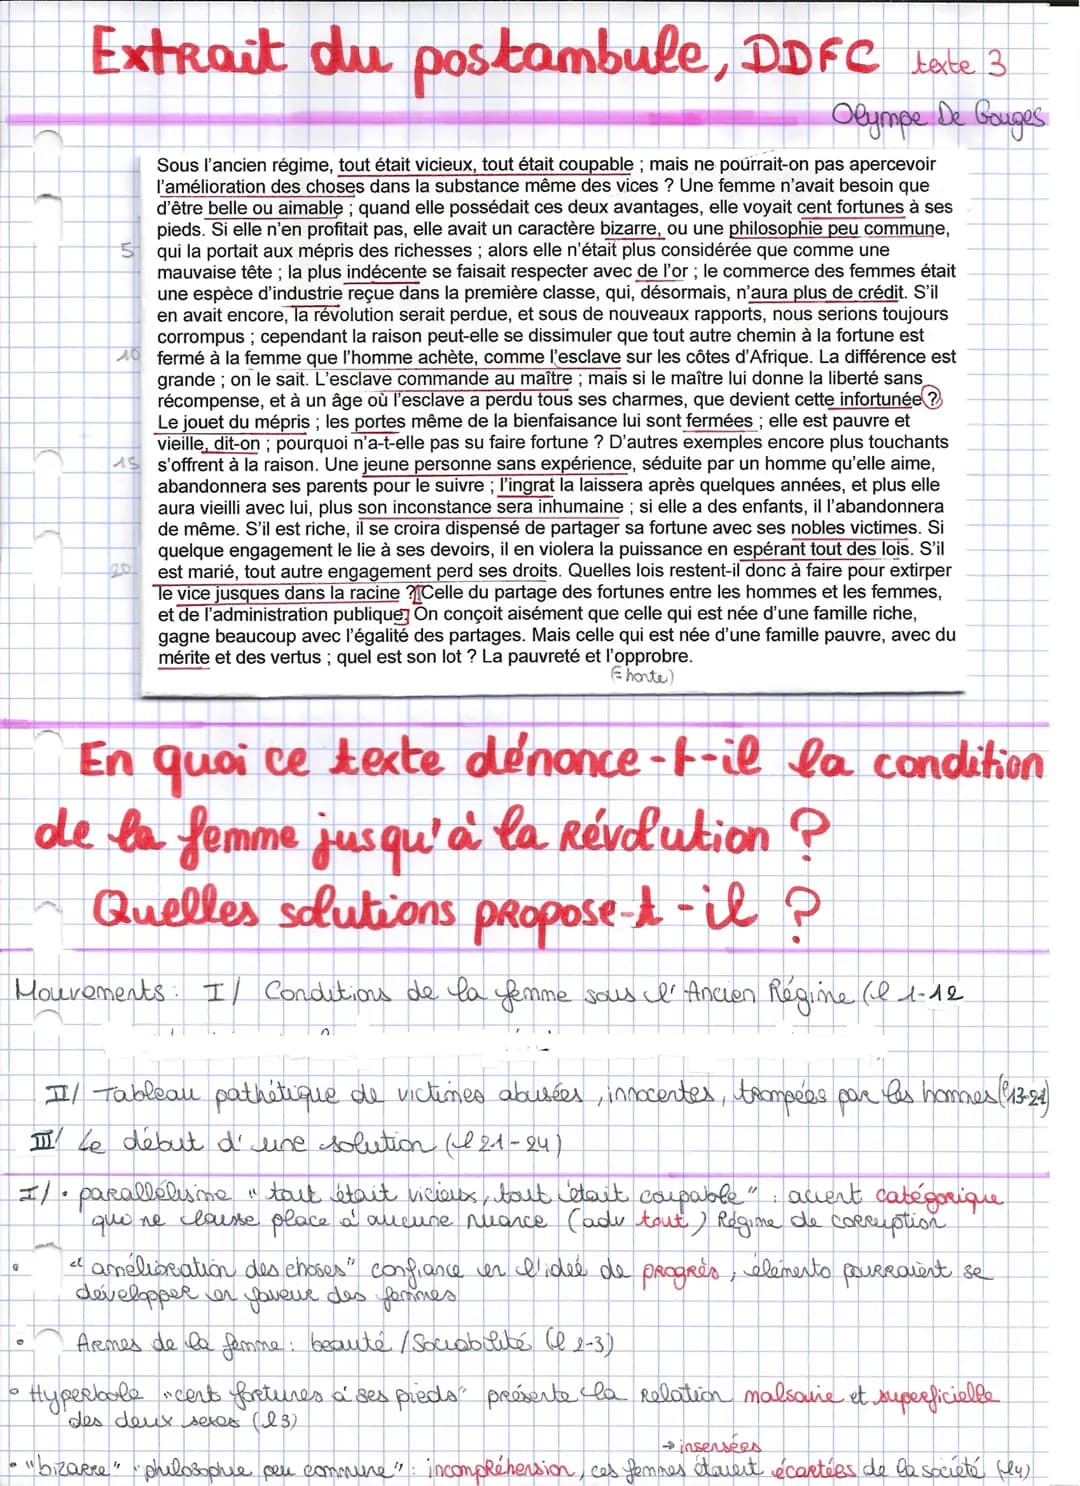 Extrait du postambule, DDFC texte 3
Olympe De Gouges
Sous l'ancien régime, tout était vicieux, tout était coupable ; mais ne pourrait-on pas apercevoir
l'amélioration des choses dans la substance même des vices ? Une femme n'avait besoin que
d'être belle ou aimable ; quand elle possédait ces deux avantages, elle voyait cent fortunes à ses
pieds. Si elle n'en profitait pas, elle avait un caractère bizarre, ou une philosophie peu commune,
5 qui la portait aux mépris des richesses ; alors elle n'était plus considérée que comme une
mauvaise tête ; la plus indécente se faisait respecter avec de l'or ; le commerce des femmes était
une espèce d'industrie reçue dans la première classe, qui, désormais, n'aura plus de crédit. S'il
en avait encore, la révolution serait perdue, et sous de nouveaux rapports, nous serions toujours
corrompus ; cependant la raison peut-elle se dissimuler que tout autre chemin à la fortune est
10 fermé à la femme que l'homme achète, comme l'esclave sur les côtes d'Afrique. La différence est
grande ; on le sait. L'esclave commande au maître ; mais si le maître lui donne la liberté sans
récompense, et à un âge où l'esclave a perdu tous ses charmes, que devient cette infortunée ?
Le jouet du mépris ; les portes même de la bienfaisance lui sont fermées ; elle est pauvre et
vieille, dit-on ; pourquoi n'a-t-elle pas su faire fortune ? D'autres exemples encore plus touchants
15 s'offrent à la raison. Une jeune personne sans expérience, séduite par un homme qu'elle aime,
abandonnera ses parents pour le suivre ; l'ingrat la laissera après quelques années, et plus elle
aura vieilli avec lui, plus son inconstance sera inhumaine ; si elle a des enfants, il l'abandonnera
de même. S'il est riche, il se croira dispensé de partager sa fortune avec ses nobles victimes. Si
quelque engagement le lie à ses devoirs, il en violera la puissance en espérant tout des lois. S'il
20 est marié, tout autre engagement perd ses droits. Quelles lois restent-il donc à faire pour extirper
le vice jusques dans la racine ? [Celle du partage des fortunes entre les hommes et les femmes,
et de l'administration publique] On conçoit aisément que celle qui est née d'une famille riche,
gagne beaucoup avec l'égalité des partages. Mais celle qui est née d'une famille pauvre, avec du
mérite et des vertus ; quel est son lot ? La pauvreté et l'opprobre.
(= honte)
En quoi ce texte dénonce-t-il la condition
de la femme jusqu'à la Révolution ?
Quelles solutions propose-t-il ?
Mouvements : I/ Conditions de la femme sous l'Ancien Régime (l 1-12
II/ Tableau pathétique de victimes abusées, innocentes, trompées par les hommes (l 13-21)
III/ Le début d'une solution (l 21-24)
I/ • parallélisme "tout était vicieux, tout était coupable" : accent catégorique
qui ne laisse place à aucune nuance (adv tout) Régime de corruption
• "amélioration des choses" confiance en l'idée de progrès, éléments pourraient se
développer en faveur des femmes
• Armes de la femme : beauté / Sociabilité (l 2-3)
• Hyperbole "cent fortunes à ses pieds" présente la relation malsaine et superficielle
des deux sexes (l 3)
→ insensées
• "bizarre" "philosophie peu commune" : incompréhension, ces femmes étaient écartées de la société (l4)